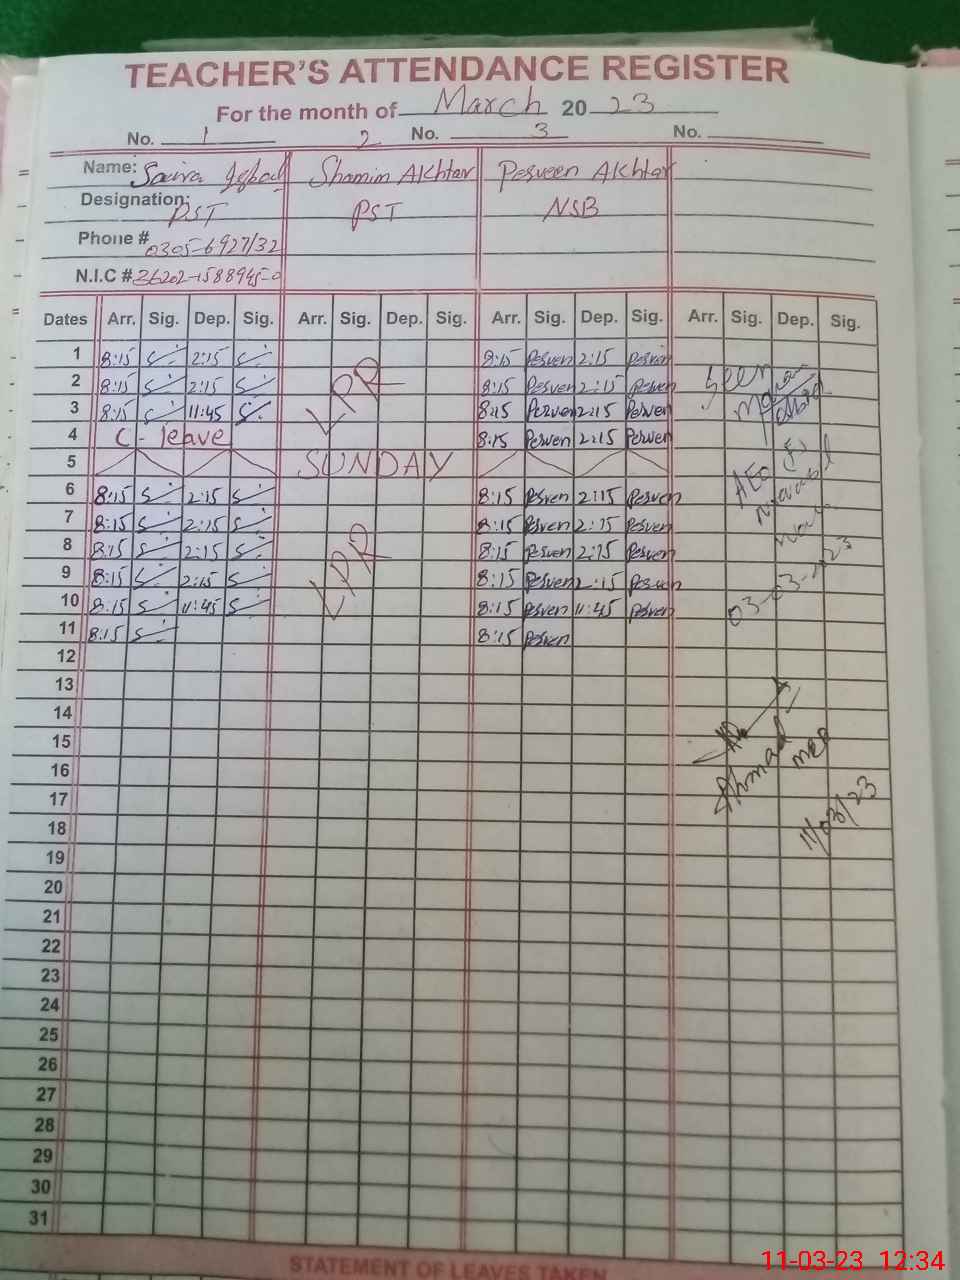 TEACHER'S ATTENDANCE REGISTER
For the month of March 20 23
No. 1 2 No. 3 No.
Name: Saira Iqbal Shamim Akhtar Perveen Akhtar
Designation: PST PST NSB
Phone # 0305-6927132
N.I.C # 36202-1588945-0
Dates Arr. Sig. Dep. Sig. Arr. Sig. Dep. Sig. Arr. Sig. Dep. Sig. Arr. Sig. Dep. Sig.
1 8:15 2:15 8:15 Perven 2:15 Perven
2 8:15 2:15 LPR 8:15 Perven 2:15 Perven Seen
3 8:15 11:45 8:15 Perven 2:15 Perven
4 C-leave 8:15 Perven 2:15 Perven
5 SUNDAY
6 8:15 2:15 8:15 Perven 2:15 Perven AEO
7 8:15 2:15 8:15 Perven 2:15 Perven
8 8:15 2:15 LPR 8:15 Perven 2:15 Perven
9 8:15 2:15 8:15 Perven 2:15 Perven
10 8:15 11:45 8:15 Perven 11:45 Perven 03-03-2023
11 8:15 8:15 Perven
12
13
14
15
16 Ahmad MEA
17
18 11/03/23
19
20
21
22
23
24
25
26
27
28
29
30
31
STATEMENT OF LEAVES TAKEN
11-03-23 12:34